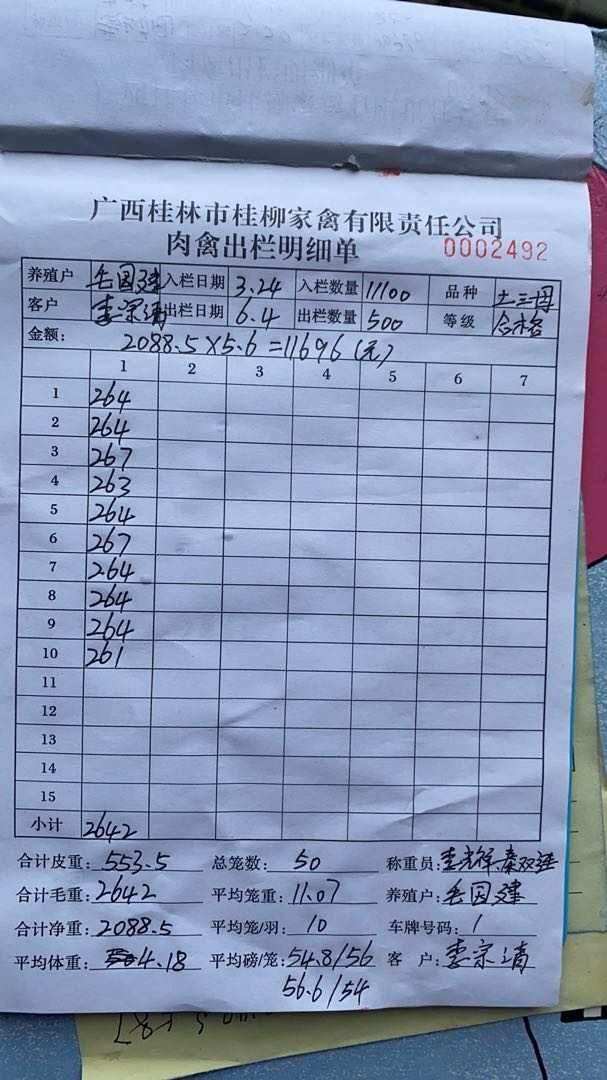 广西桂林市桂柳家禽有限责任公司
肉禽出栏明细单 0002492
养殖户 毛因建 入栏日期 3.24 入栏数量 11100 品种 土三月
客户 李宗清 出栏日期 6.4 出栏数量 500 等级 合格
金额: 2088.5×5.6=11696(元)
1 2 3 4 5 6 7
1 264
2 264
3 267
4 263
5 264
6 267
7 264
8 264
9 264
10 261
11
12
13
14
15
小计 2642
合计皮重: 553.5 总笼数: 50 称重员: 秦双建
合计毛重: 2642 平均笼重: 11.07 养殖户: 毛因建
合计净重: 2088.5 平均笼/羽: 10 车牌号码: 1
平均体重: 4.18 平均磅/笼: 54.8/56 客户: 李宗清
56.6/54